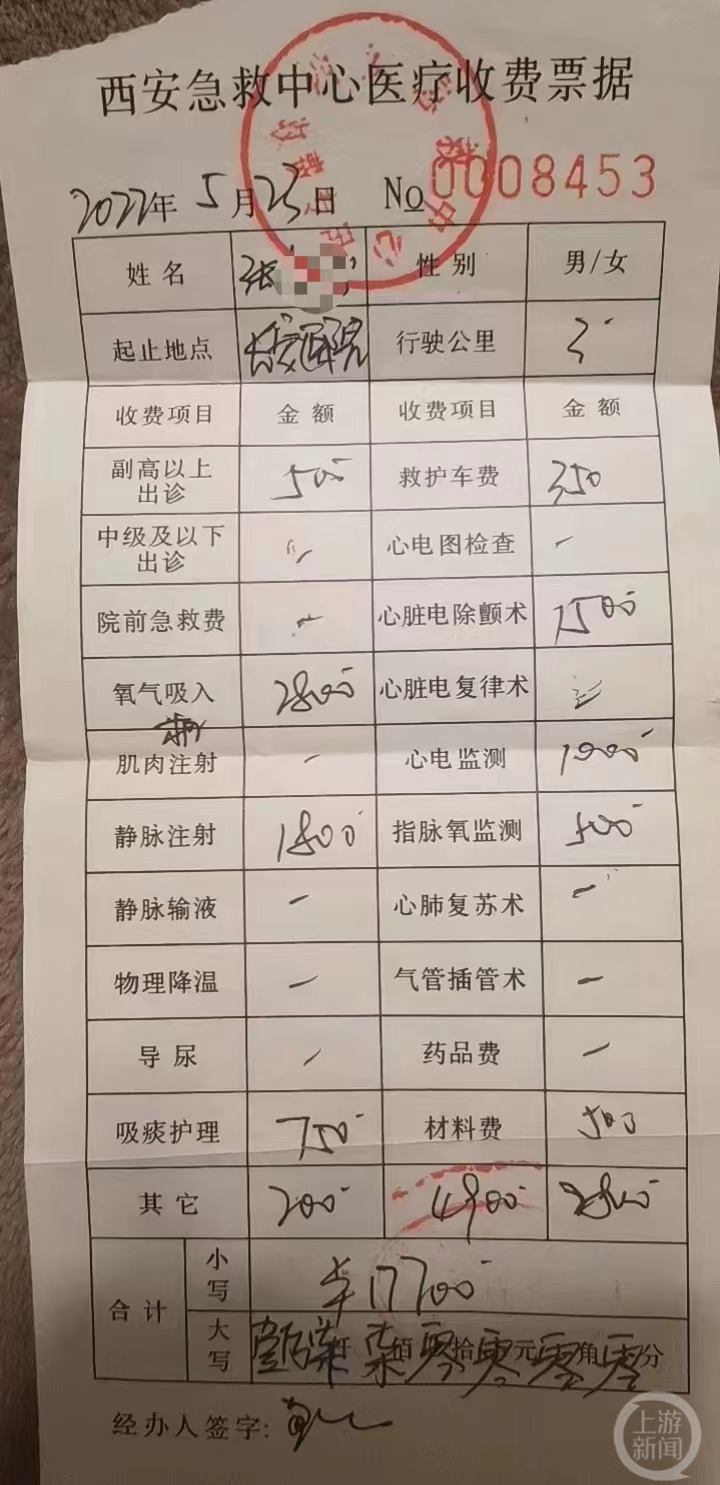 西安急救中心医疗收费票据
2022年 5月25日 No 0008453
姓名 张 性别 男/女
起止地点 长安医院 行驶公里 3
收费项目 金额 收费项目 金额
副高以上出诊 500 救护车费 350
中级及以下出诊 - 心电图检查 -
院前急救费 - 心脏电除颤术 1500
氧气吸入 2800 心脏电复律术
肌肉注射 - 心电监测 1000
静脉注射 1800 指脉氧监测 500
静脉输液 - 心肺复苏术 -
物理降温 - 气管插管术 -
导尿 - 药品费 -
吸痰护理 750 材料费 500
其它 200 4900
合计 小写 ¥17700
大写 壹万柒仟柒佰零拾零元零角零分
经办人签字:
上游新闻